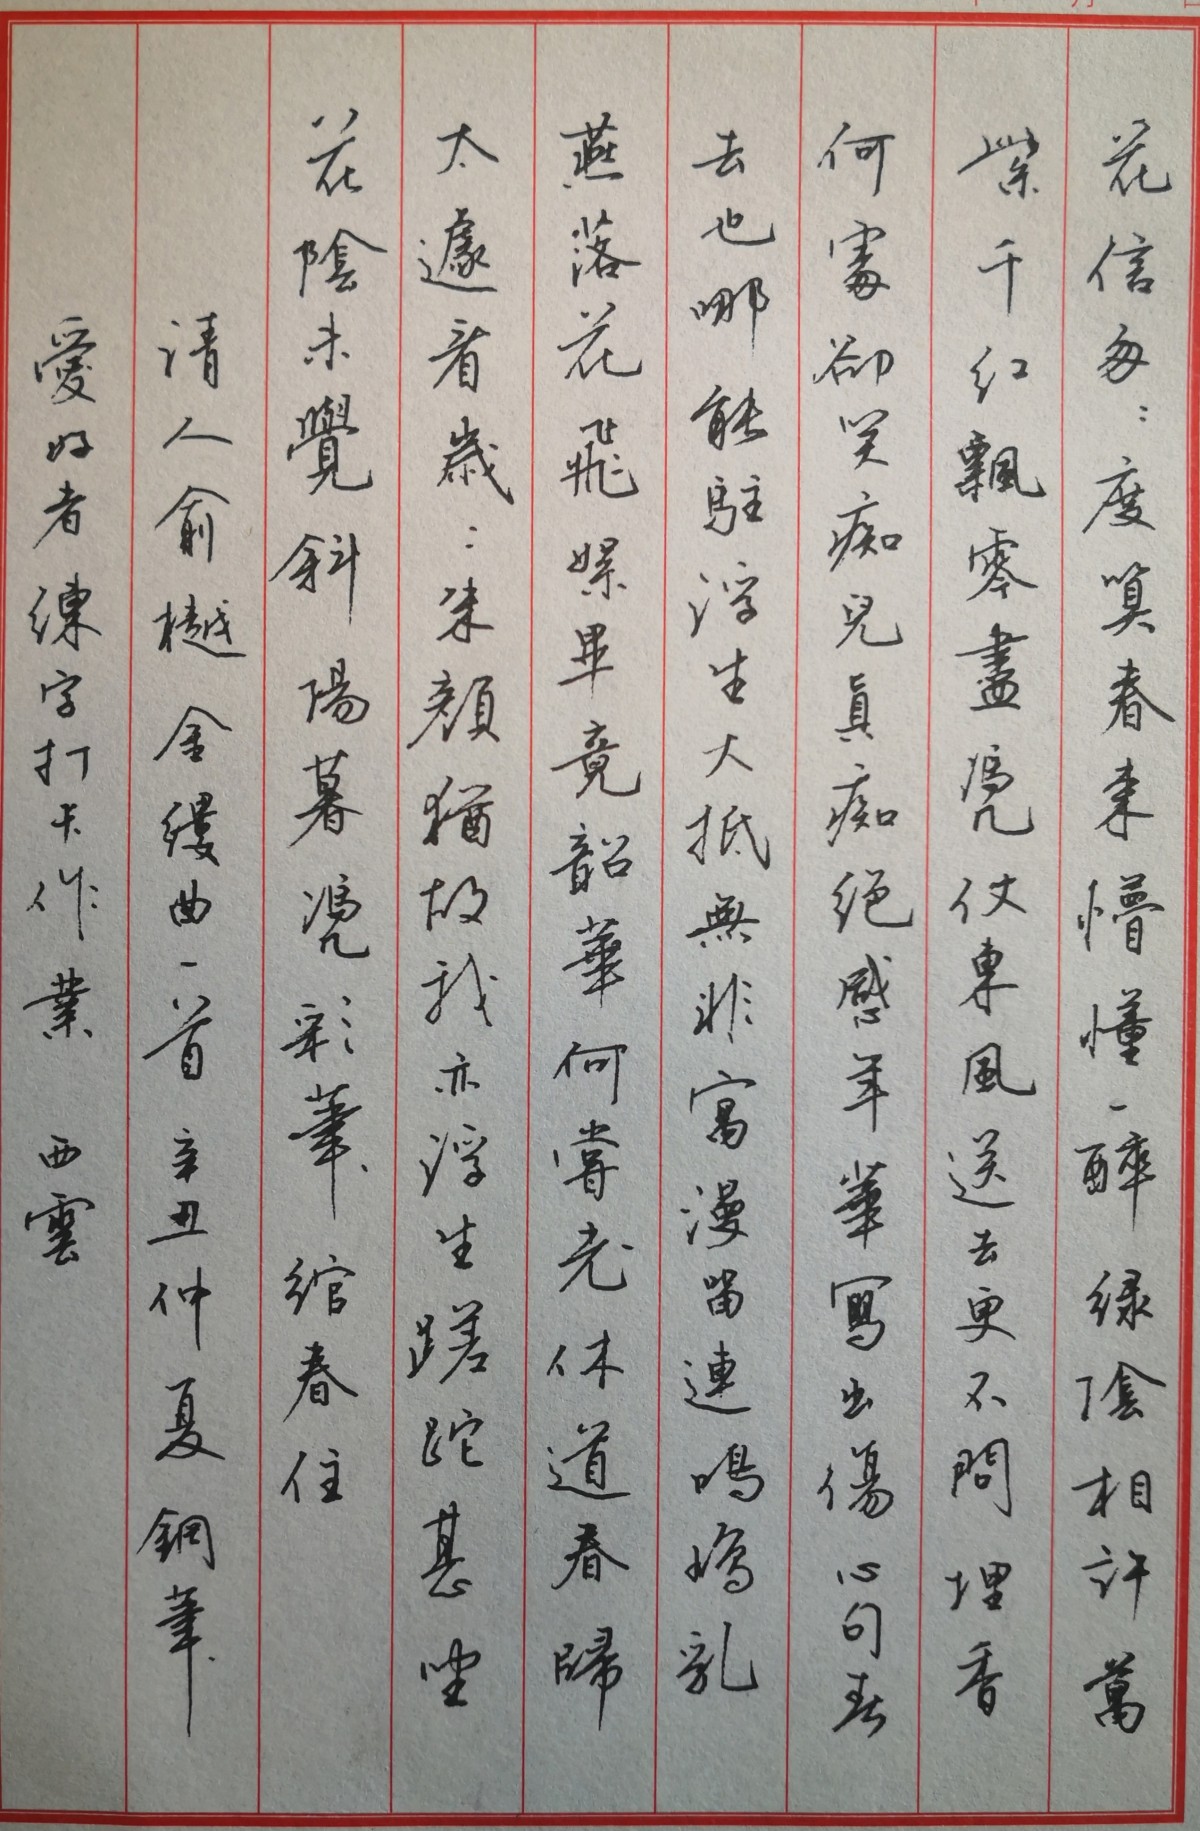 花信匆:度算春来懵懂一醉緑陰相許萬
紫千红飄零盡凴仗東風送去更不問埋香
何處卻笑痴兒真痴絕感年華寫出傷心句春
去也哪能駐浮生大抵無非寓漫留連鳴鳩乳
燕落花飛絮畢竟韶華何嘗老休道春歸
太遽看歲:朱顔猶故我亦浮生蹉跎甚坐
花陰未覺斜陽暮凴彩筆綰春住
清人俞樾金縷曲一首辛丑仲夏鋼筆
愛好者練字打卡作業 西雲